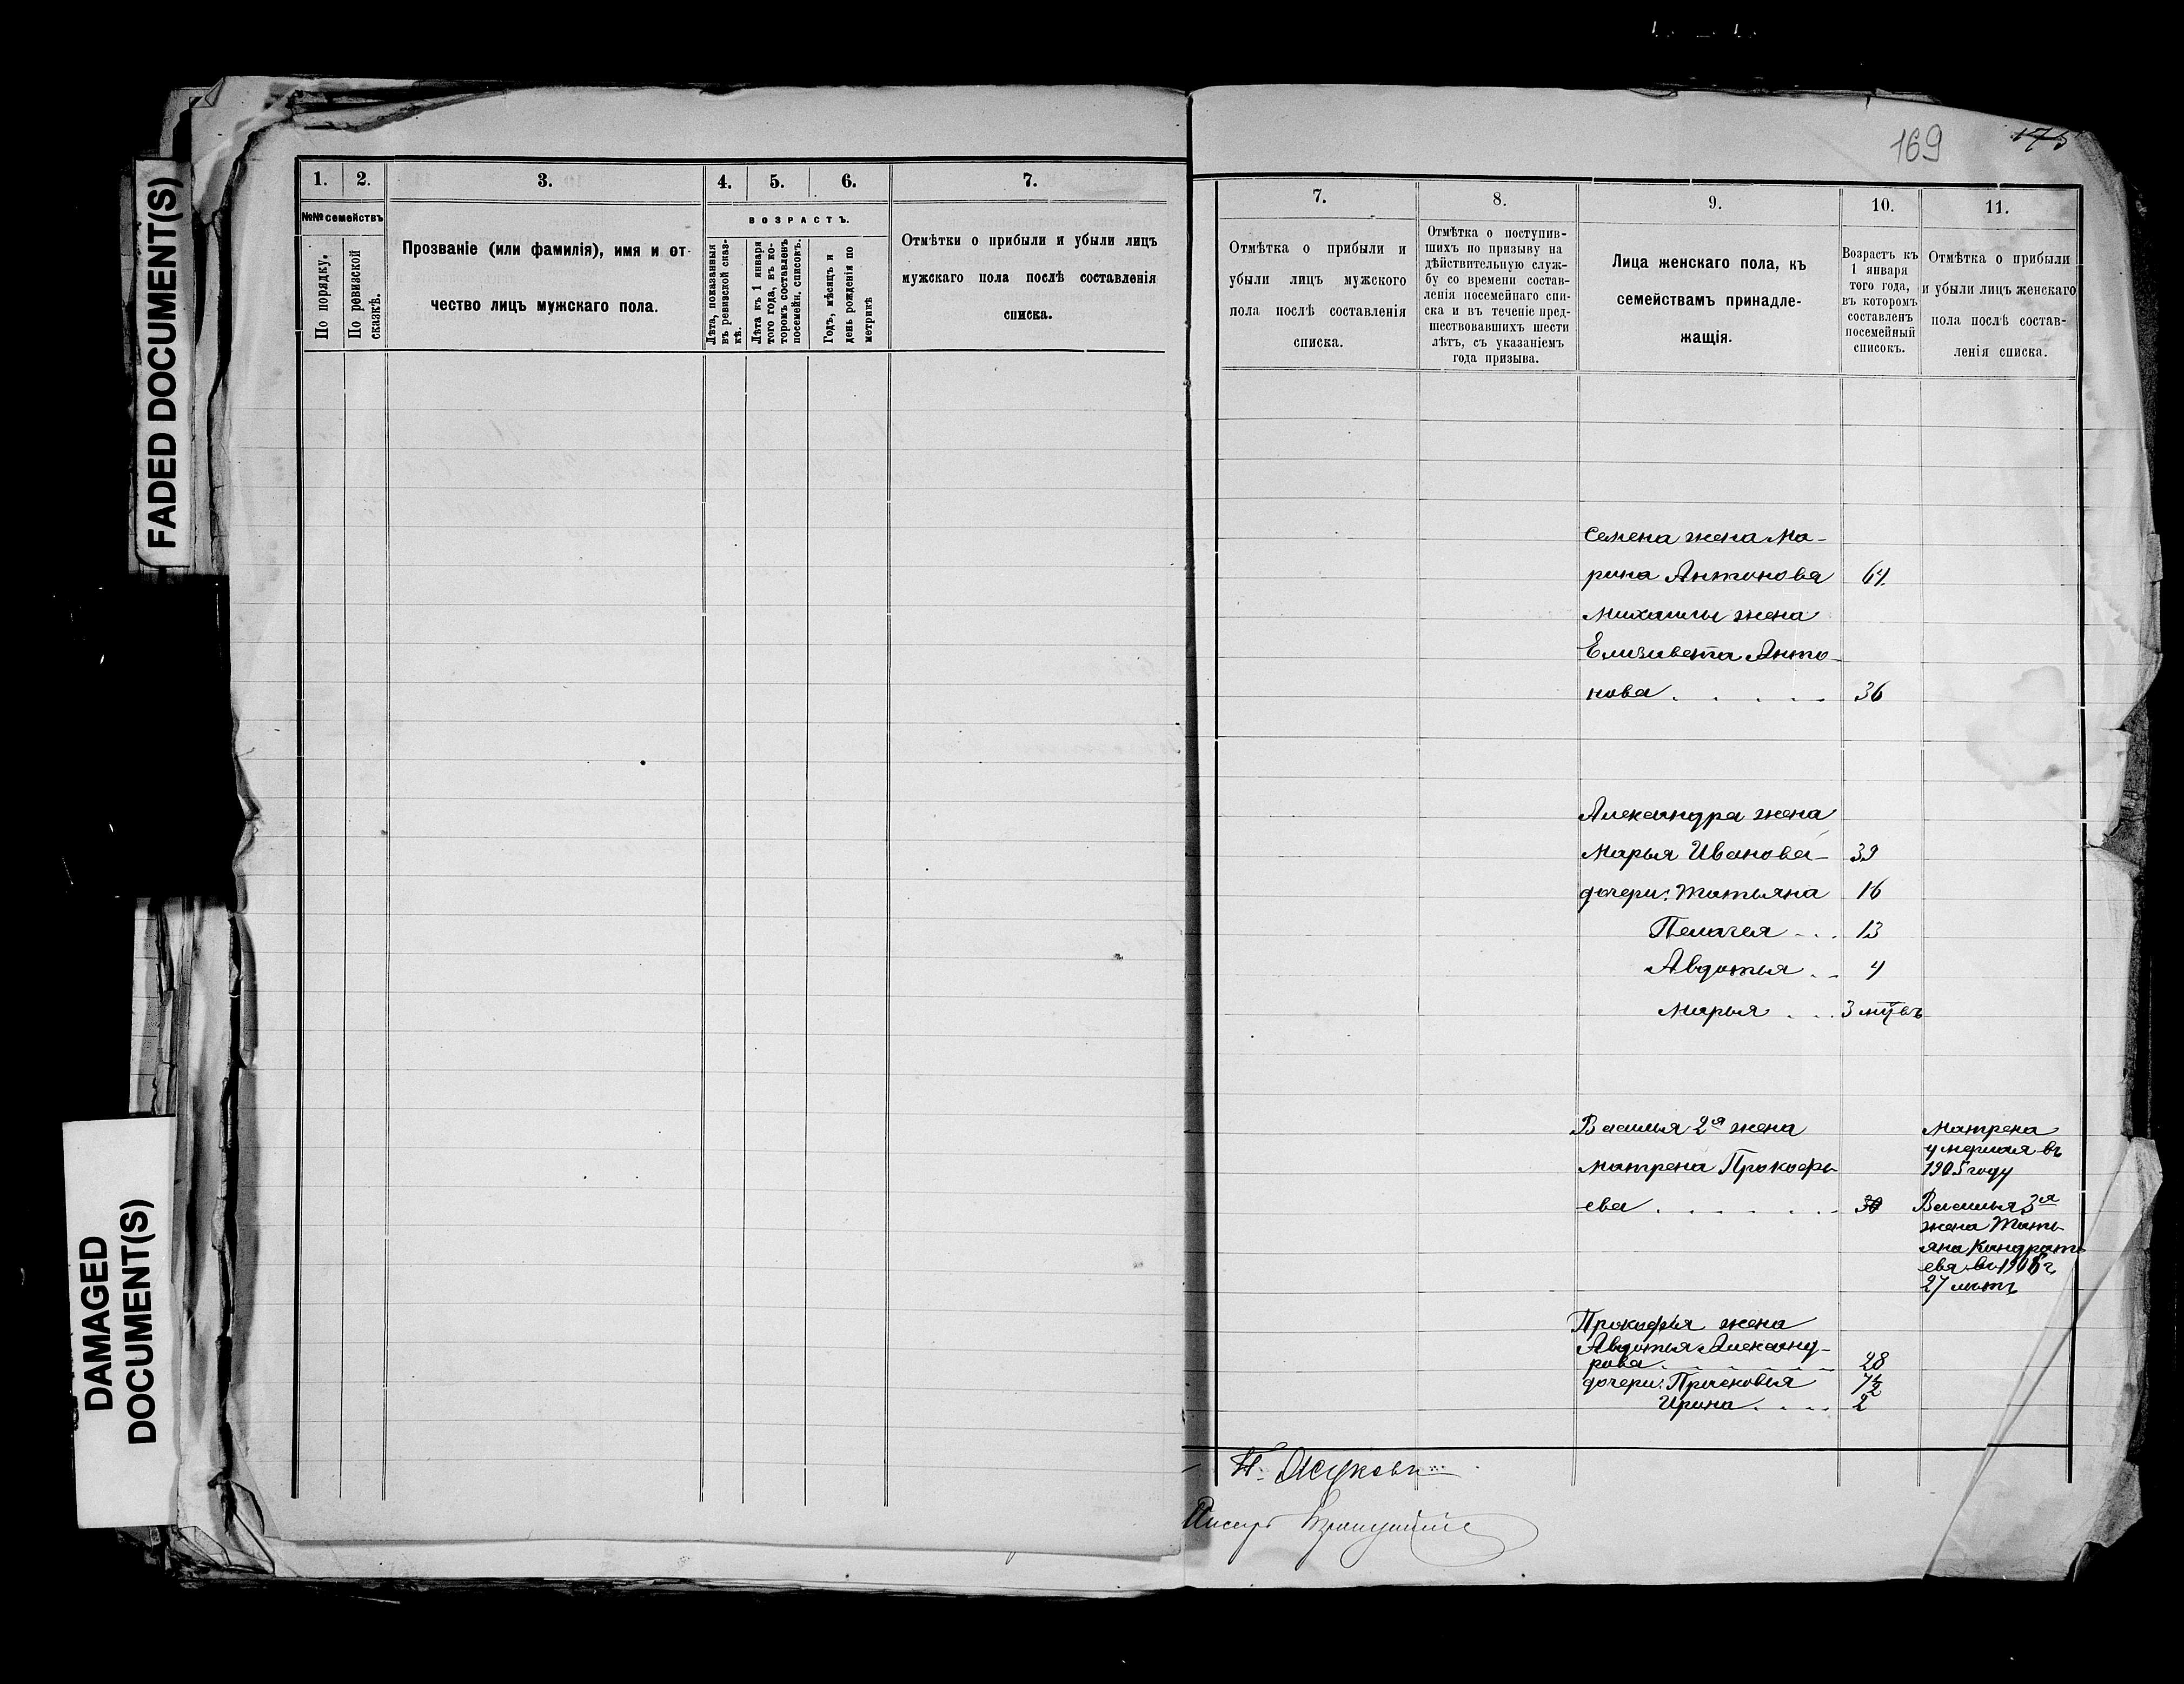 FADED DOCUMENT(S)
DAMAGED
DOCUMENT(S)
1. 2. 3. 4. 5. 6. 7.
№№ семействъ
По порядку.
По ревизской
сказкѣ.
Прозваніе (или фамилія), имя и от-
чество лицъ мужскаго пола.
ВОЗРАСТЪ.
Лѣта, показанныя
въ ревизской сказ-
кѣ.
Лѣта къ 1 января
того года, въ ко-
торомъ составленъ
посемейн. списокъ.
Годъ, мѣсяцъ и
день рожденія по
метрикѣ
Отмѣтки о прибыли и убыли лицъ
мужскаго пола послѣ составленія
списка.
169
175
7. 8. 9. 10. 11.
Отмѣтка о прибыли и
убыли лицъ мужского
пола послѣ составленія
списка.
Отмѣтка о поступив-
шихъ по призыву на
дѣйствительную служ-
бу со времени состав-
ленія посемейнаго спи-
ска и въ теченіе пред-
шествовавшихъ шести
лѣтъ, съ указаніемъ
года призыва.
Лица женскаго пола, къ
семействамъ принадле-
жащія.
Возрастъ къ
1 января
того года,
въ которомъ
составленъ
посемейный
списокъ.
Отмѣтка о прибыли
и убыли лицъ женскаго
пола послѣ состав-
ленія списка.
Семена жена Ма-
рина Антонова 64
Михаилы жена
Елизавета Анто-
нова 36
Александра жена
Марья Иванова 39
дочери: Татьяна 16
Пелагея 13
Авдотья 4
Марья 3 мцвъ
Василья 2я жена
Матрена Прокофь-
ева 30
Матрена
умершая въ
1905 году
Василья 3я
жена Тать-
яна Кондрать-
ева въ 1906 г
27 летъ
Прокофья жена
Авдотья Александ-
рова 28
дочери: Прасковья 7½
Ирина 2
П. Жуковъ
Писарь